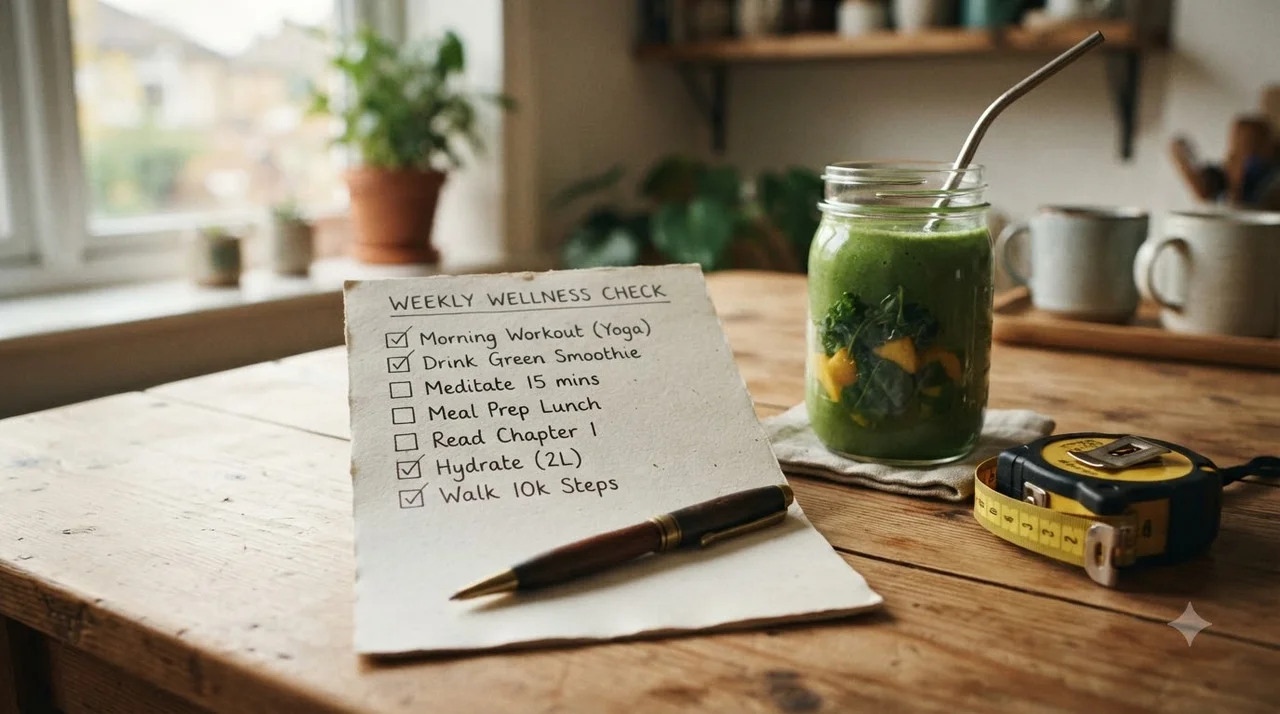 WEEKLY WELLNESS CHECK
☑ Morning Workout (Yoga)
☑ Drink Green Smoothie
☐ Meditate 15 mins
☐ Meal Prep Lunch
☐ Read Chapter 1
☑ Hydrate (2L)
☑ Walk 10k Steps